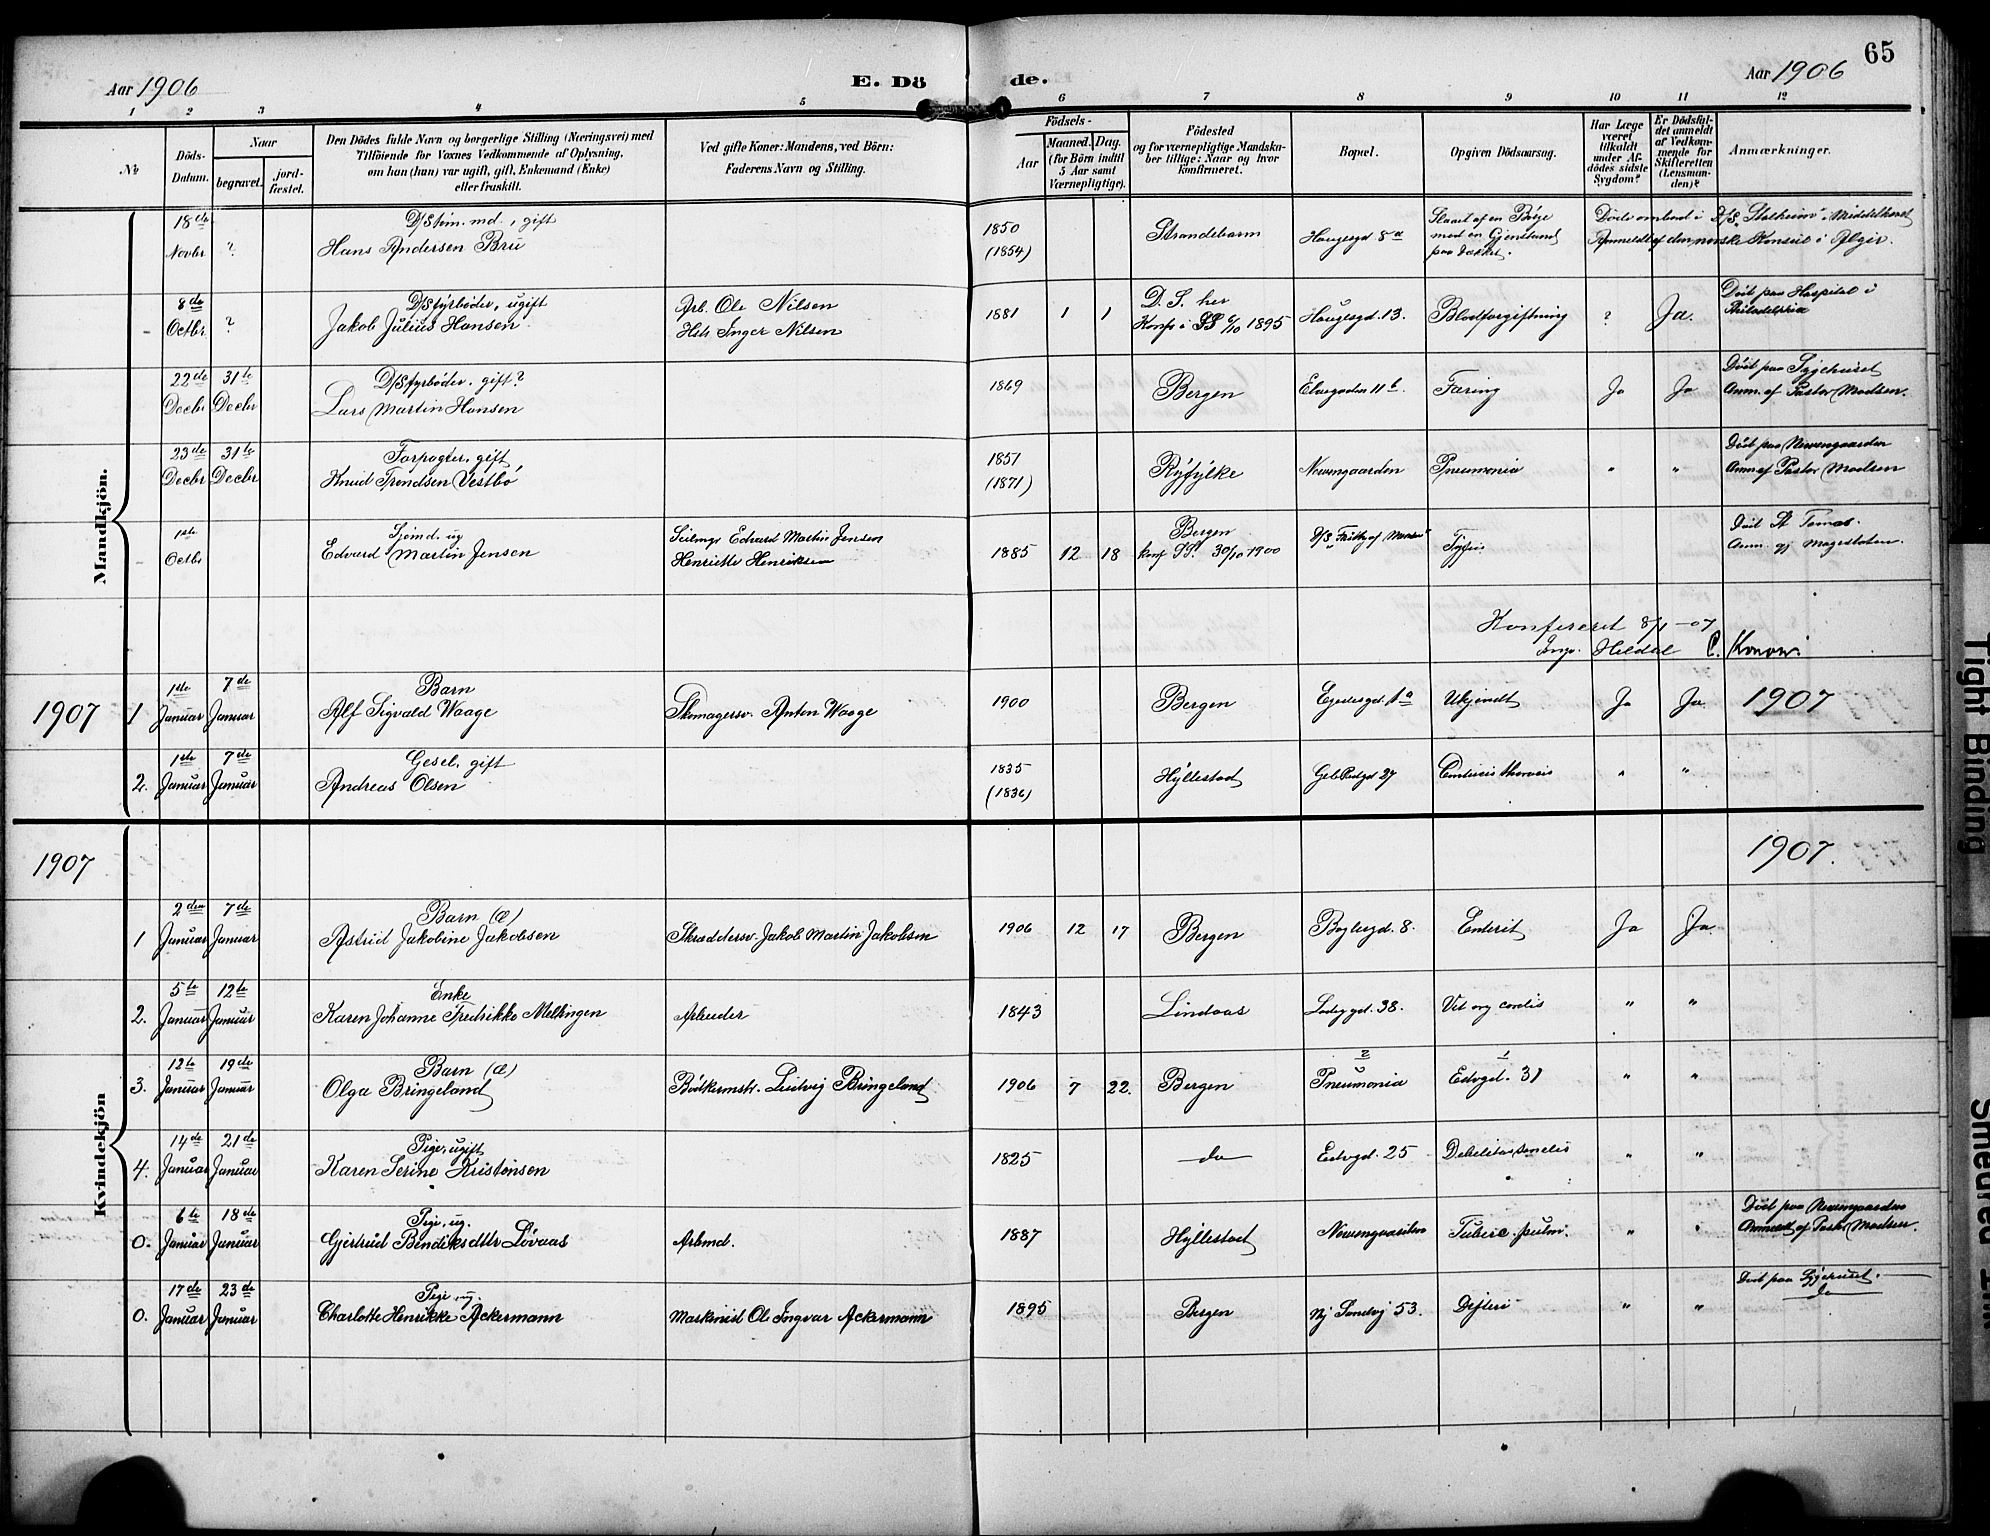 65
Aar 1906
E. Dö
de.
Aar 1906
1 2 3 4 5 6 7 8 9 10 11 12
No
Döds-
Datum.
Naar
begravet.
jord-
fæstet.
Den Dödes fulde Navn og borgerlige Stilling (Næringsvei) med
Tilföiende for Voxnes Vedkommende af Oplysning,
om han (hun) var ugift, gift, Enkemand (Enke)
eller fraskilt.
Ved gifte Koner: Mandens, ved Börn:
Faderens Navn og Stilling.
Födsels-
Aar
Maaned. Dag.
(for Börn indtil
5 Aar samt
Værnepligtige).
Födested
og for værnepligtige Mandska-
ber tillige: Naar og hvor
konfirmeret.
Bopæl.
Opgiven Dödsaarsag.
Har Læge
været
tilkaldt
under Af-
dödes sidste
Sygdom?
Er Dödsfal-
det anmeldt
af Vedkom-
mende for
Skifteretten
(Lensman-
den)?
Anmærkninger.
Mandkjön.
18de Novbr ? D/S tøm.md., gift
Hans Andersen Brü
1850 (1854) Strandebarm Haugesgd 8a
Slaaet af en Bøige
med en Gjenstand
paa Dækket.
Døde ombord i D/S "Stalheim" i Middelhavet
Anmeldt af den norske Konsul i Algir.
8de Octbr ? D/S fyrbøder, ugift
Jakob Julius Hansen
Arb. Ole Nilsen
Inger Nilsen
1881 1 1 D. S. her
Konf i SS 6/10 1895
Haugesgd. 13. Blodforgiftning ? Ja.
Død paa Hospital i
Philadelphia
22de Decbr 31te Decbr D/S fyrbøder, gift?
Lars Martin Hansen
1869 Bergen Elvegaden 11b. Tæring Ja Ja
Død paa Sygehuset
Anm. af Pastor Madsen.
23de Decbr 31te Decbr Forpagter, gift
Knud Trondsen Vestbø
1851 (1871) Ryfylke Nevengaarden Pneumonia " "
Død paa Nevengaarden
Anm af Pastor Madsen
1ste Octbr Sjømd. ug
Edvard Martin Jensen
Edvard Martin Jensen
Henriette Henriksen
1885 12 18 Bergen
konf SS. 30/10 1900
Tyfus
Død St Tomas.
Konfereret 8/1 - 07
Hildal C. Konow.
1907
1 1ste Januar 7de Januar Barn
Alf Sigvald Waage
Skomagersv. Anton Waage
1900 Bergen Egedesgd. 1a Ukjendt Ja Ja 1907
2. 1ste Januar 7de Januar Gesel, gift
Andreas Olsen
1835 (1836) Hyllestad 27 " "
Kvindekjön
1907
1907.
1 2den Januar 7de Januar Barn (Æ)
Astrid Jakobine Jakobsen
Skræddersv. Jakob Martin Jakobsen
1906 12 17 Bergen 8. Enterit Ja Ja
2. 5te Januar 12te Januar Enke
Karen Johanne Fredrikke Mellingen
Arbeider
1843 Lindaas 38. Vit org cordis " "
3. 12te Januar 19de Januar Barn (Æ)
Olga Bringeland
Bødkermstr. Ludvig Bringeland
1906 7 22. Bergen
2 1
Pneumonia Edvgd. 31 " "
4. 14de Januar 21de Januar Pige, ugift
Karen Serine Kristensen
1825 do Edvgd. 25 Debelitas senelis " "
0. 6te Januar 18de Januar Pige, ug.
Gjertrud Bendiksdttr Løvaas
Arbmd.
1887 Hyllestad Nevengaarden Tuberc. pulm. " "
Død paa Nevengaarden
Anmeldt af Pastor Madsen.
0. 17de Januar 23de Januar Pige, ug.
Charlotte Henrikke Ackermann
Maskinist Ole Ingvar Ackermann
1895 Bergen Ny Sandvg 53. Difteri " "
Død paa Sygehuset.
do
Tight Binding
Smeared Ink